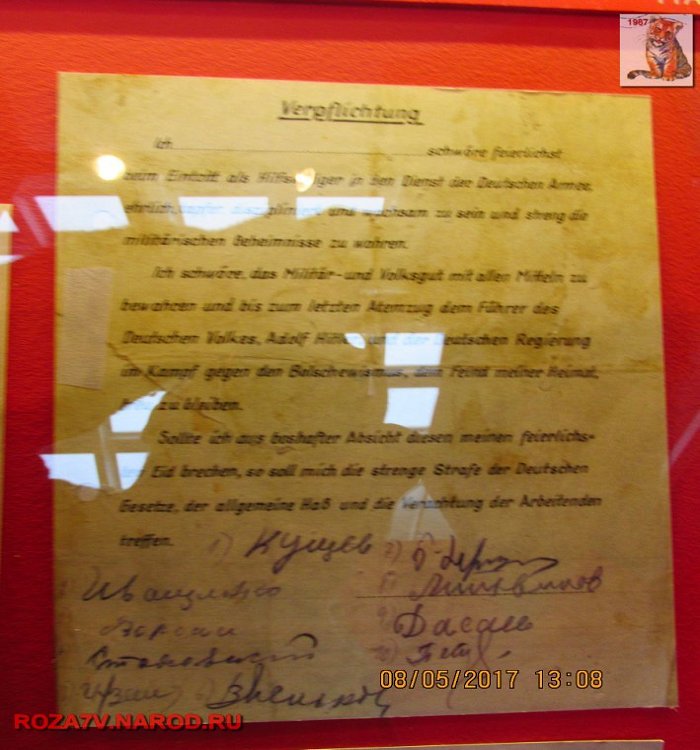 1967
Verpflichtung
Ich schwöre feierlichst
beim Eintritt als Hilfswilliger in den Dienst der Deutschen Armee,
ehrlich, tapfer, diszipliniert und wachsam zu sein und streng die
militärischen Geheimnisse zu wahren.
Ich schwöre, das Militär- und Volksgut mit allen Mitteln zu
bewahren und bis zum letzten Atemzug dem Führer des
Deutschen Volkes, Adolf Hitler, und der Deutschen Regierung
im Kampf gegen den Bolschewismus, dem Feind meiner Heimat,
treu zu bleiben.
Sollte ich aus boshafter Absicht diesen meinen feierlichs-
ten Eid brechen, so soll mich die strenge Strafe der Deutschen
Gesetze, der allgemeine Haß und die Verachtung der Arbeitenden
treffen.
1) Кущев
Дасаев
08/05/2017 13:08
ROZA7V.NAROD.RU